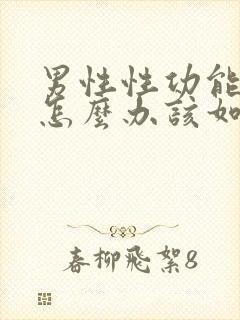 男性性功能
怎麼办該如
春柳飛絮8